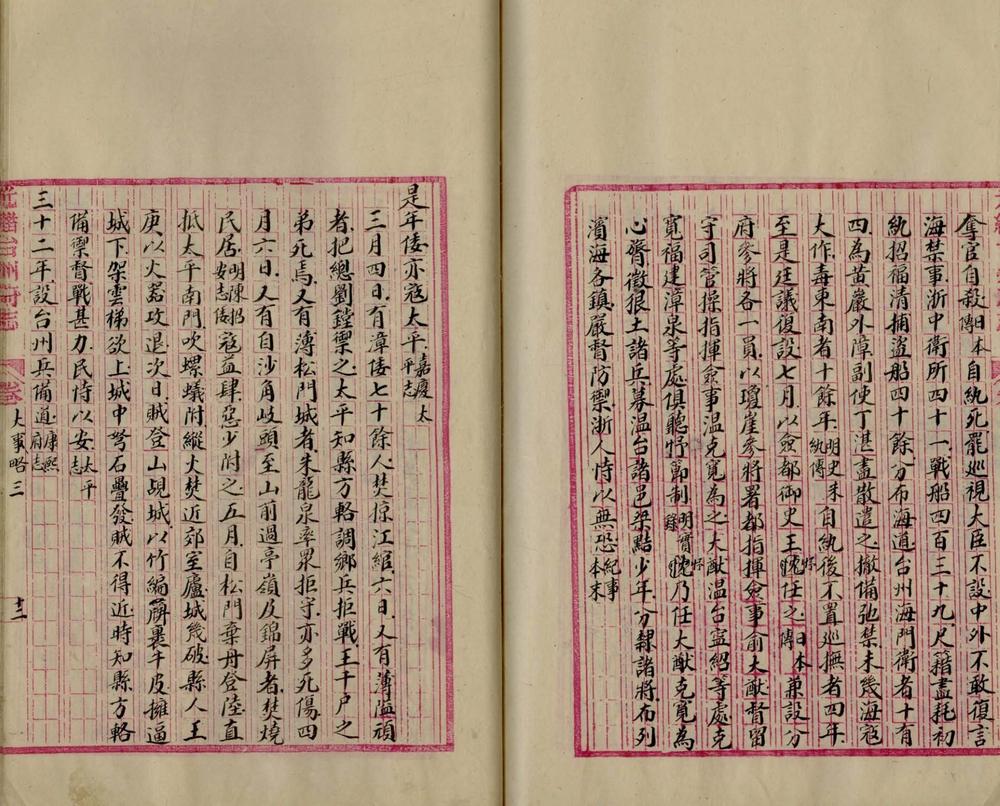 奪官自殺日本傳自紈死罷巡視大臣不設中外不敢復言
海禁事浙中衛所四十一戰船四百三十九尺籍盡耗初
紈招福清捕盜船四十餘分布海道台州海門衛者十有
四為黃巖外障副使丁湛盡散遣之撤備弛禁未幾海寇
大作毒東南者十餘年明史朱紈傳自紈後不置巡撫者四年
至是廷議復設七月以僉都御史王忬任之日本傳兼設分
府參將各一員以瓊崖參將署都指揮僉事俞大猷督留
守司管操指揮僉事溫克寬為之大猷溫台寧紹等處克
寬福建漳泉等處俱聽忬節制明實錄忬乃任大猷克寬為
心膂徵狼土諸兵募溫台諸邑桀黠少年分隸諸將布列
濱海各鎮嚴督防禦浙人恃以無恐紀事本末
是年倭亦寇太平嘉慶太平志
三月四日有漳倭七十餘人焚掠江綰六日又有薄隘頑
者把總劉鏜禦之太平知縣方輅調鄉兵拒戰王千戶之
弟死焉又有薄松門城者朱龍泉率眾拒守亦多死傷四
月六日又有自沙角岐頭至山前過亭嶺及錦屏者焚燒
民居明陳㧑女志倭寇益肆惡少附之五月自松門棄舟登陸直
抵太平南門吹螺蟻附縱火焚近郊室廬城幾破縣人王
庚以火器攻退次日賊登山覘城以竹編牌裹牛皮擁逼
城下架雲梯欲上城中弩石疊發賊不得近時知縣方輅
備禦督戰甚力民恃以安太平志
三十二年設台州兵備道康熙府志
台州府志
卷
大事略三
十二